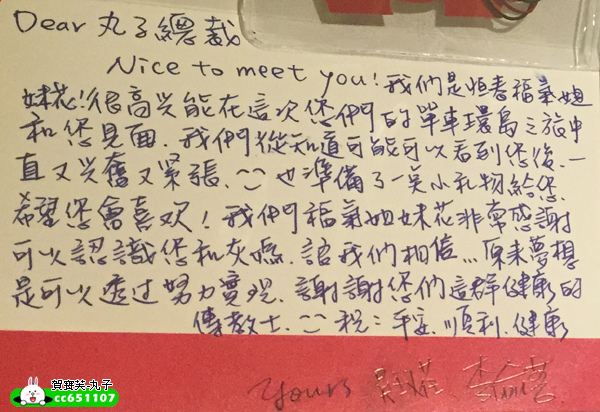 Dear 丸子總裁
Nice to meet you! 我們是恒春福氣姐
妹花!很高兴能在這次您們的單車環島之旅中
和您見面. 我們從知道可能可以看到您後.一
直又兴奮又緊張. 也準備了一点小礼物給您.
希望您會喜欢! 我們福氣姐妹花非常感謝
可以認識您和灰媽. 諳我們相信... 原來夢想
是可以透过努力實現. 謝謝您們這群健康的
傳教士. 祝: 平安. 順利. 健康
Yours
賀寶芙-丸子
cc651107